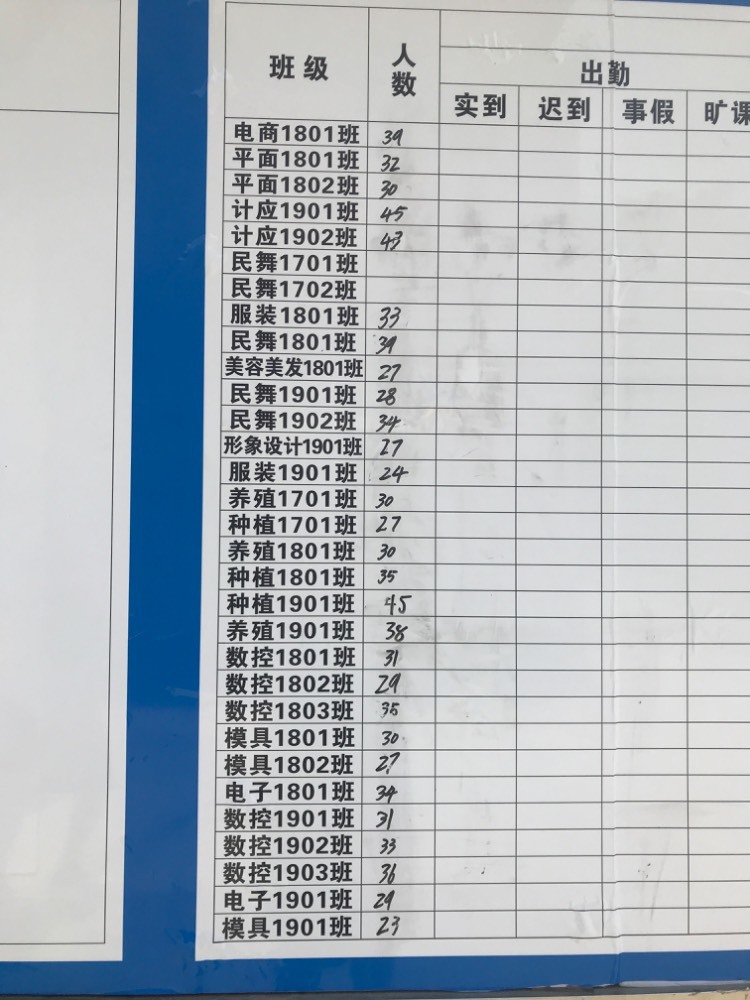 班级 人数 出勤
实到 迟到 事假 旷课
电商1801班 39
平面1801班 32
平面1802班 30
计应1901班 45
计应1902班 43
民舞1701班
民舞1702班
服装1801班 33
民舞1801班 39
美容美发1801班 27
民舞1901班 28
民舞1902班 34
形象设计1901班 27
服装1901班 24
养殖1701班 30
种植1701班 27
养殖1801班 30
种植1801班 35
种植1901班 45
养殖1901班 38
数控1801班 31
数控1802班 29
数控1803班 35
模具1801班 30
模具1802班 27
电子1801班 34
数控1901班 31
数控1902班 33
数控1903班 36
电子1901班 29
模具1901班 23